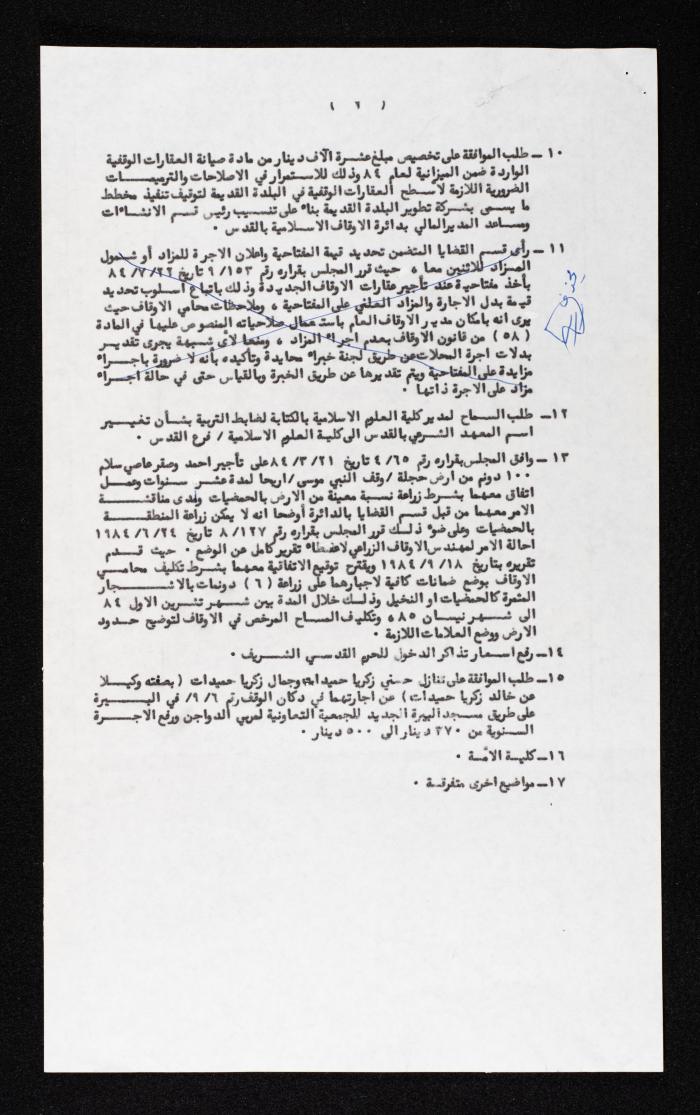 ( ٦ )
١٠ ــ طلب الموافقة على تخصيص مبلغ عشرة آلاف دينار من مادة صيانة العقارات الوقفية
الواردة ضمن الميزانية لعام ٨٤ وذلك للاستمرار في الاصلاحات والترميمات
الضرورية اللازمة لاسطح العقارات الوقفية في البلدة القديمة لتوقيف تنفيذ مخطط
ما يسمى بشركة تطوير البلدة القديمة بناء على تنسيب رئيس قسم الانشاءات
ومساعد المدير المالي بدائرة الاوقاف الاسلامية بالقدس ٠
١١ ــ رأى قسم القضايا المتضمن تحديد قيمة المفتاحية واعلان الاجرة للمزاد أو شمول
المزاد للاثنين معا ، حيث قرر المجلس بقراره رقم ٩/١٥٣ تاريخ ٨٤/٧/٢٢
بأخذ مفتاحية عند تأجير عقارات الاوقاف الجديدة وذلك باتباع اسلوب تحديد
قيمة بدل الاجارة والمزاد العلني على المفتاحية ، وملاحظات محامي الاوقاف حيث
يرى انه بامكان مدير الاوقاف العام باستعمال صلاحياته المنصوص عليها في المادة
( ٥٨ ) من قانون الاوقاف بعدم اجراء المزاد ، ومنعا لأى شبهة يجرى تقدير
بدلات اجرة المحلات عن طريق لجنة خبراء محايدة وتأكيده بأنه لا ضرورة باجراء
مزايدة على المفتاحية ويتم تقديرها عن طريق الخبرة وبالقياس حتى في حالة اجراء
مزاد على الاجرة ذاتها ٠
١٢ــ طلب السماح لمدير كلية العلوم الاسلامية بالكتابة لضابط التربية بشأن تغيير
اسم المعهد الشرعي بالقدس الى كلية العلوم الاسلامية / فرع القدس ٠
١٣ ــ وافق المجلس بقراره رقم ٤/٦٥ تاريخ ٨٤/٣/٢١ على تأجير احمد وصقر عاصي سلام
١٠٠ دونم من ارض حجلة / وقف النبي موسى / اريحا لمدة عشر سنوات وعمل
اتفاق معهما بشرط زراعة نسبة معينة من الارض بالحمضيات ولدى مناقشة
الامر معهما من قبل قسم القضايا بالدائرة أوضحا انه لا يمكن زراعة المنطقة
بالحمضيات وعلى ضوء ذلك قرر المجلس بقراره رقم ٨/١٢٧ تاريخ ١٩٨٤/٦/٢٤
احالة الامر لمهندس الاوقاف الزراعي لاعطاء تقرير كامل عن الوضع ٠ حيث قدم
تقريره بتاريخ ١٩٨٤/٩/١٨ ويقترح توقيع الاتفاقية معهما بشرط تكليف محامي
الاوقاف بوضع ضمانات كافية لاجبارهما على زراعة ( ٦ ) دونمات بالاشجار
المثمرة كالحمضيات او النخيل وذلك خلال المدة بين شهر تشرين الاول ٨٤
الى شهر نيسان ٨٥ ، وتكليف المساح المرخص في الاوقاف لتوضيح حدود
الارض ووضع العلامات اللازمة ٠
١٤ــ رفع اسعار تذاكر الدخول للحرم القدسي الشريف ٠
١٥ــ طلب الموافقة على تنازل حسني زكريا حميدات وجمال زكريا حميدات ( بصفته وكيلا
عن خالد زكريا حميدات ) عن اجارتهما في دكان الوقف رقم ٩/٦ في البيرة
على طريق مسجد البيرة الجديد للجمعية التعاونية لمربي الدواجن ورفع الاجرة
السنوية من ٣٧٠ دينار الى ٥٠٠ دينار ٠
١٦ــ كلية الأمة ٠
١٧ــ مواضيع اخرى متفرقة ٠